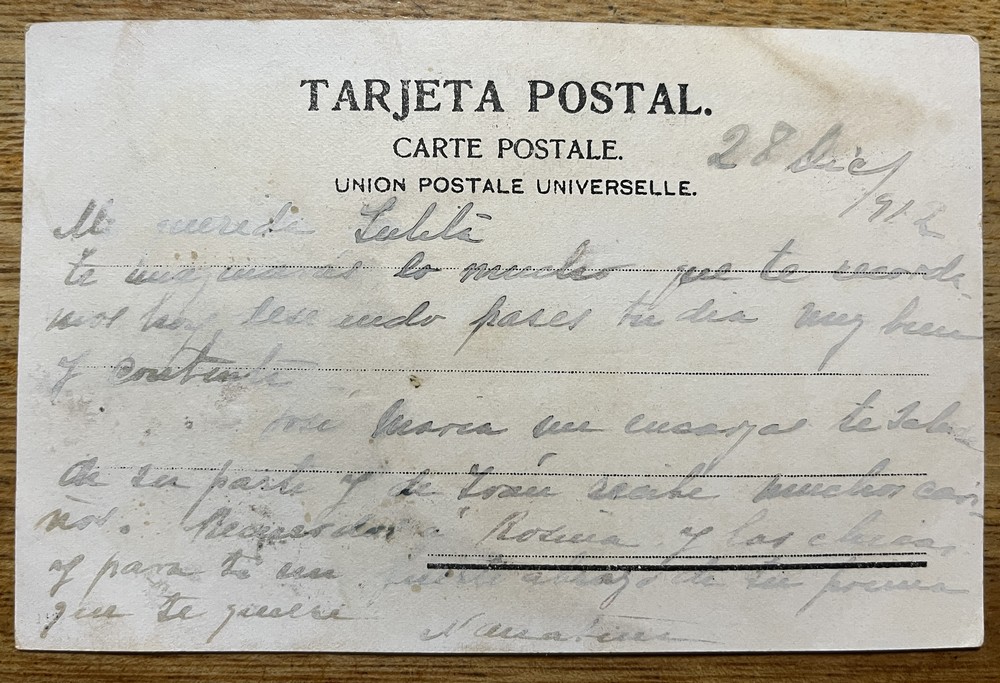 TARJETA POSTAL.
CARTE POSTALE.
UNION POSTALE UNIVERSELLE.
28 Dic/
1912
Mi querida
te imaginarás lo mucho que te recorda-
mos hoy deseando pases tu dia muy bien
y contenta
José Maria me encarga te salude
de su parte y de recibe muchos cari-
ños. Recuerdos á Rosina y las chicas
y para ti un fuerte abrazo de tu prima
que te quiere